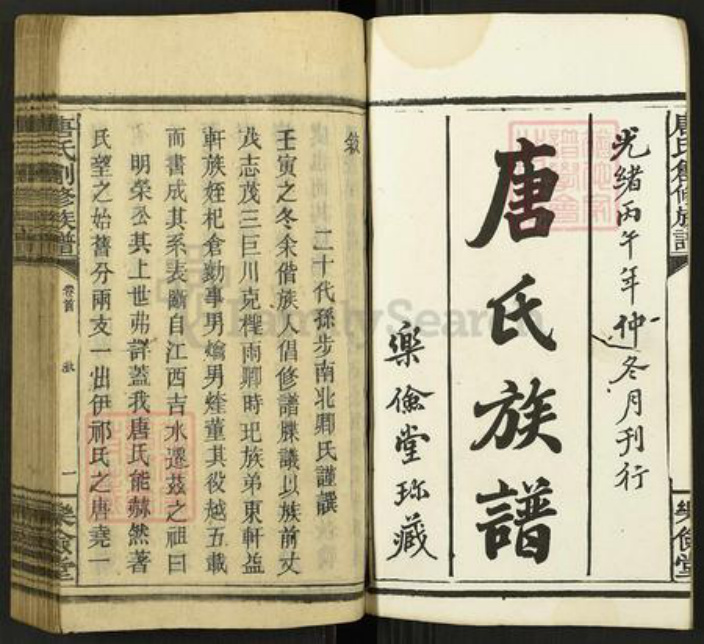 光緒丙午年仲冬月刊行
唐氏族譜
樂儉堂珍藏
唐氏創修族譜
樂儉堂
敘
二十代孫步南北卿氏謹譔
壬寅之冬余偕族人倡修譜牒議以族前丈
茂志茂三巨川克檉雨卿時玘族弟東軒益
軒族姪杞倉勷事男爚男煃董其役越五載
而書成其系表斷自江西吉水遷茲之祖曰
明榮公其上世弗詳蓋我唐氏能赫然著
氏望之始舊分兩支一出伊祁氏之唐堯一
唐氏創修族譜
卷首
敘
一
樂儉堂
FamilySearch